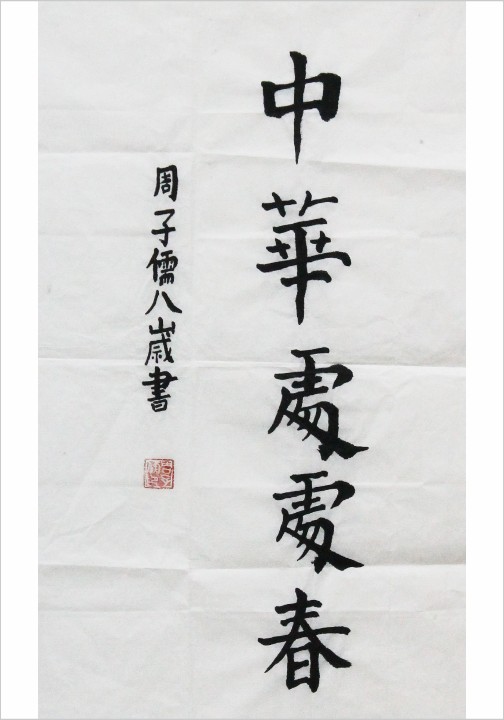 中華處處春
周子儒八歲書